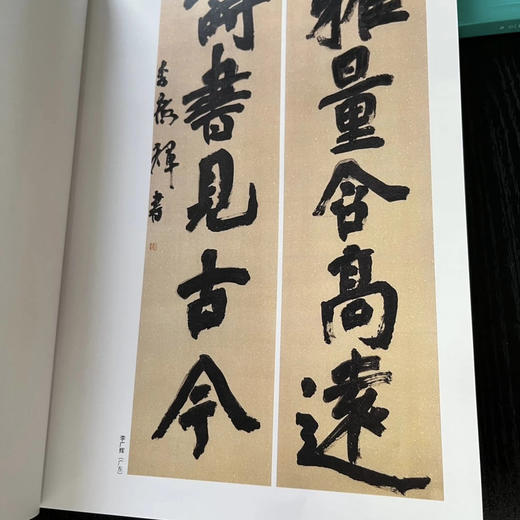 雅量含高遠
書見古今
李广辉（广东）